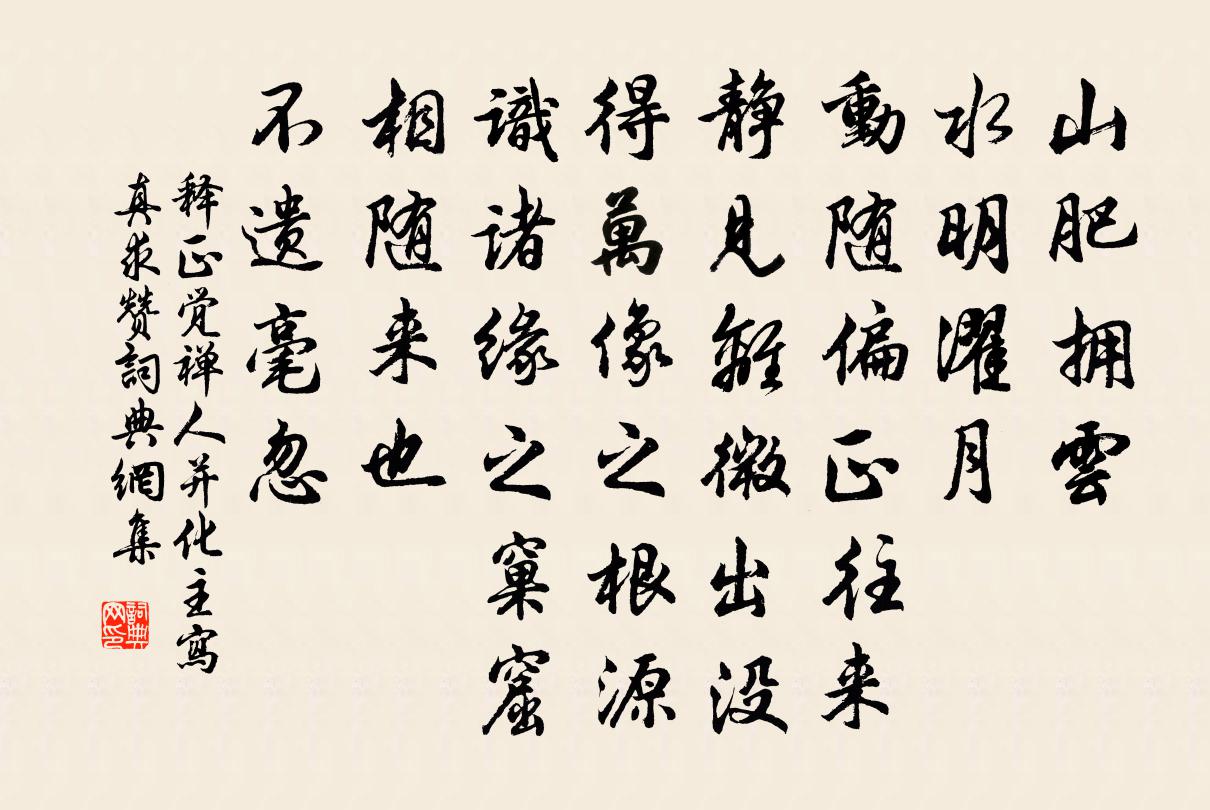 山肥拥雲
水明濯月
動随偏正往来
静見離微出没
得萬像之根源
識诸缘之窠窟
相随来也
不遗毫忽
释正觉禅人并化主寫
真求赞詞典網集
詞典
网印